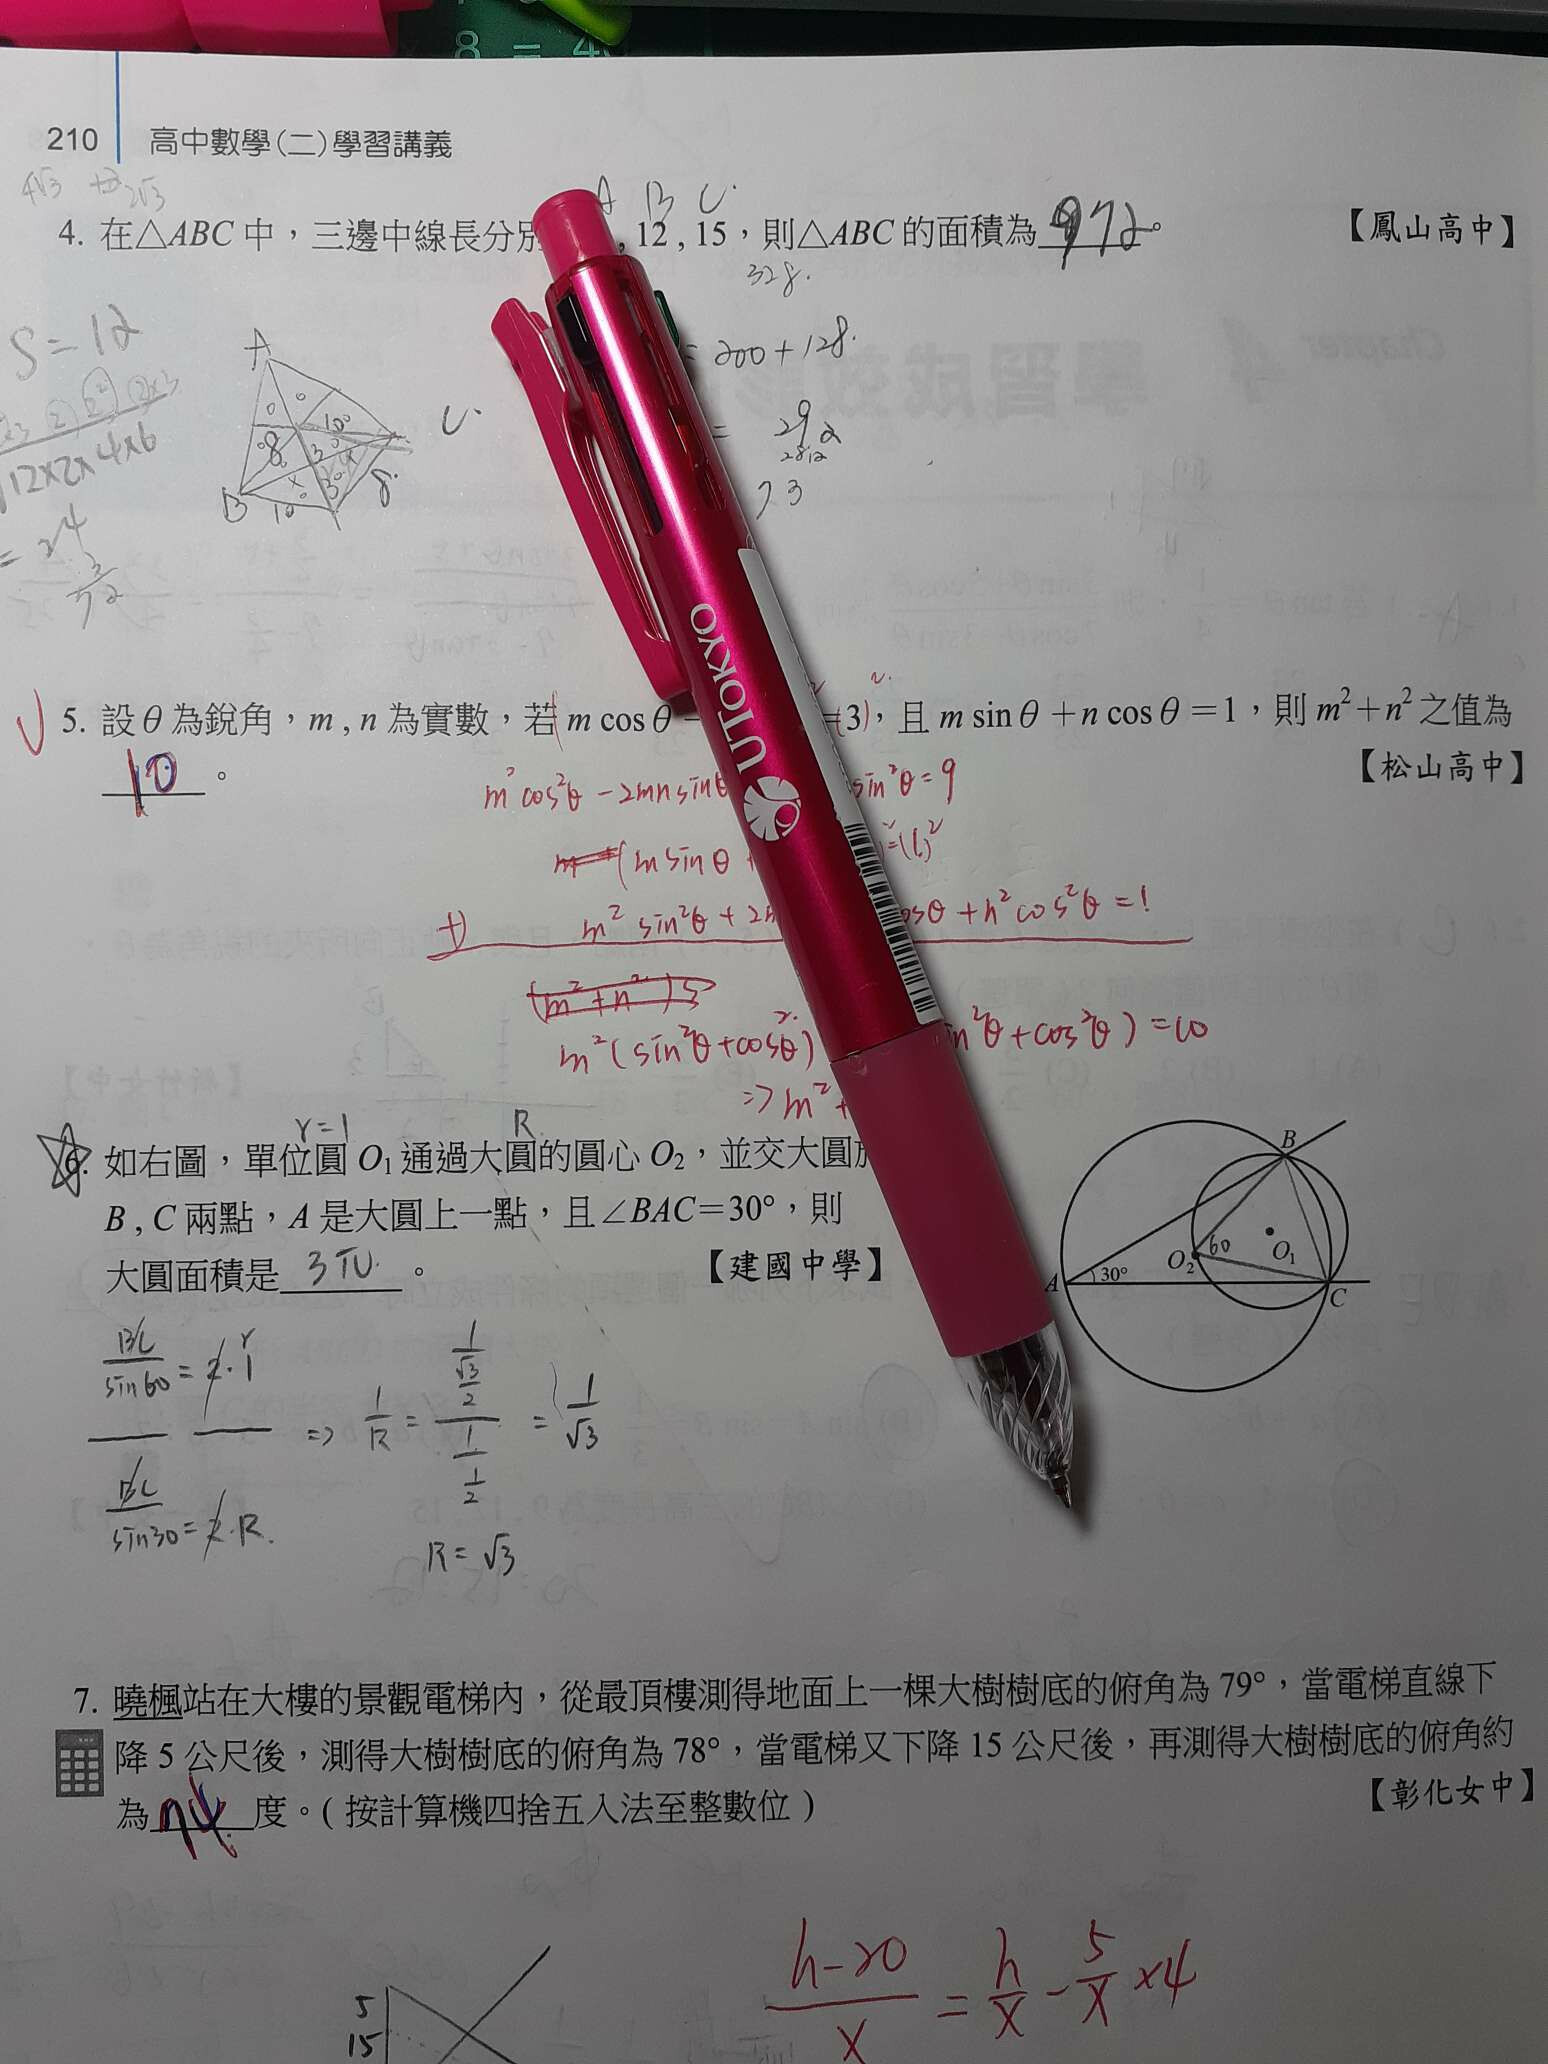 8 = 4
210 高中數學(二)學習講義
4√3 2√3
A B C
4. 在△ABC 中，三邊中線長分別 , 12 , 15，則△ABC 的面積為 72。 【鳳山高中】
328.
S = 12
= 200 + 128.
A
10
C.
8
3
B
10
8.
= 292
√12×2×4×6
73
= 24
3
72
UTOKYO
5. 設 θ 為銳角，m , n 為實數，若 m cos θ − =3，且 m sin θ + n cos θ = 1，則 m²+n² 之值為
10 。 【松山高中】
m²cos²θ − 2mnsinθ sin²θ = 9
(m sin θ )²=(1)²
+) m² sin²θ + 2 cosθ + n² cos²θ = 1
(m² + n²)
m²(sin²θ+cos²θ) in²θ + cos²θ) = 10
=> m² +
r=1 R
6. 如右圖，單位圓 O₁ 通過大圓的圓心 O₂，並交大圓於
B , C 兩點，A 是大圓上一點，且∠BAC＝30°，則
大圓面積是 3π 。 【建國中學】
B
60
O₂ O₁
A 30° C
BC/sin60 = 2·1 r
=> 1/R = (1/(√3/2))/(1/(1/2)) = 1/√3
BC/sin30 = 2·R
R = √3
7. 曉楓站在大樓的景觀電梯內，從最頂樓測得地面上一棵大樹樹底的俯角為 79°，當電梯直線下
降 5 公尺後，測得大樹樹底的俯角為 78°，當電梯又下降 15 公尺後，再測得大樹樹底的俯角約
為 74 度。( 按計算機四捨五入法至整數位 ) 【彰化女中】
(h−20)/x = h/x − 5/x ×4
5
15